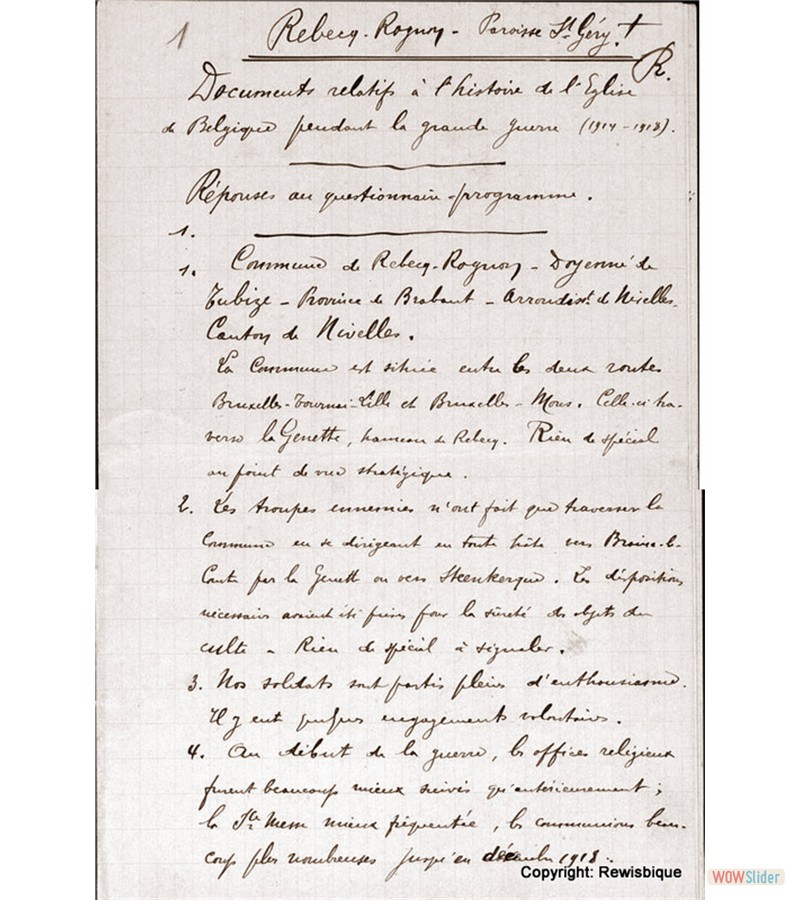 1
Rebecq-Rognon - Paroisse St Géry. +
R.
Documents relatifs à l'histoire de l'Eglise
de Belgique pendant la grande guerre (1914-1918).
Réponses au questionnaire-programme.
1.
1. Commune de Rebecq-Rognon - Doyenné de
Tubize - Province de Brabant - Arrondist. de Nivelles-
Canton de Nivelles.
La Commune est située entre les deux routes
Bruxelles-Tournai-Lille et Bruxelles-Mons. Celle-ci tra-
verse la Genette, hameau de Rebecq. Rien de spécial
au point de vue stratégique.
2. Les troupes ennemies n'ont fait que traverser la
Commune en se dirigeant en toute hâte vers Braine-le-
Comte par la Genette ou vers Steenkerque. Les dispositions
nécessaires avaient été prises pour la sûreté des objets du
culte - Rien de spécial à signaler.
3. Nos soldats sont partis pleins d'enthousiasme.
Il y eut quelques engagements volontaires.
4. Au début de la guerre, les offices religieux
furent beaucoup mieux suivis qu'antérieurement ;
la Ste Messe mieux fréquentée, les communions beau-
coup plus nombreuses jusqu'en décembre 1918.
Copyright: Rewisbique
WOWSlider